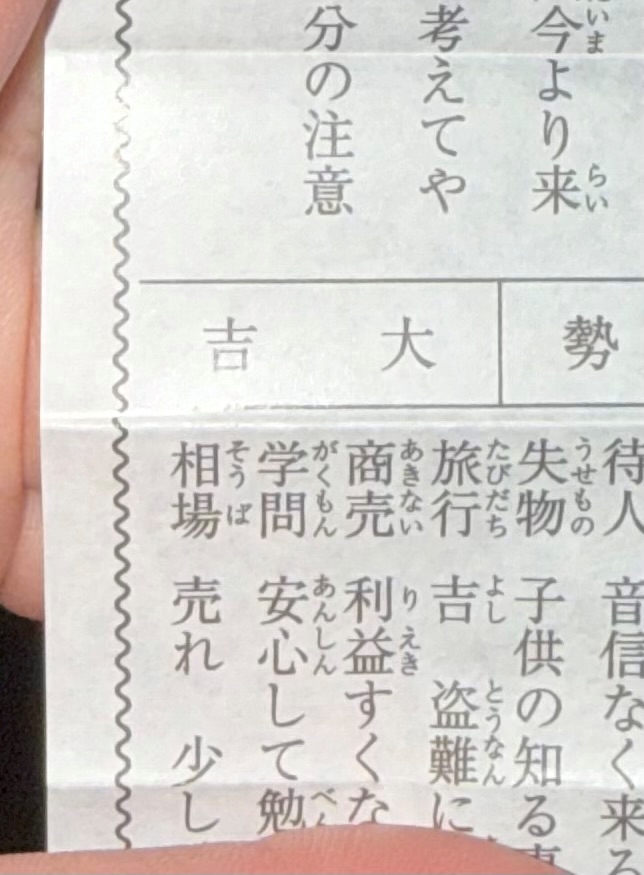 今より来
考えてや
分の注意
勢
大吉
待人 音信なく来る
失物 子供の知る
旅行 吉 盗難に
商売 利益すくな
学問 安心して勉
相場 売れ 少し